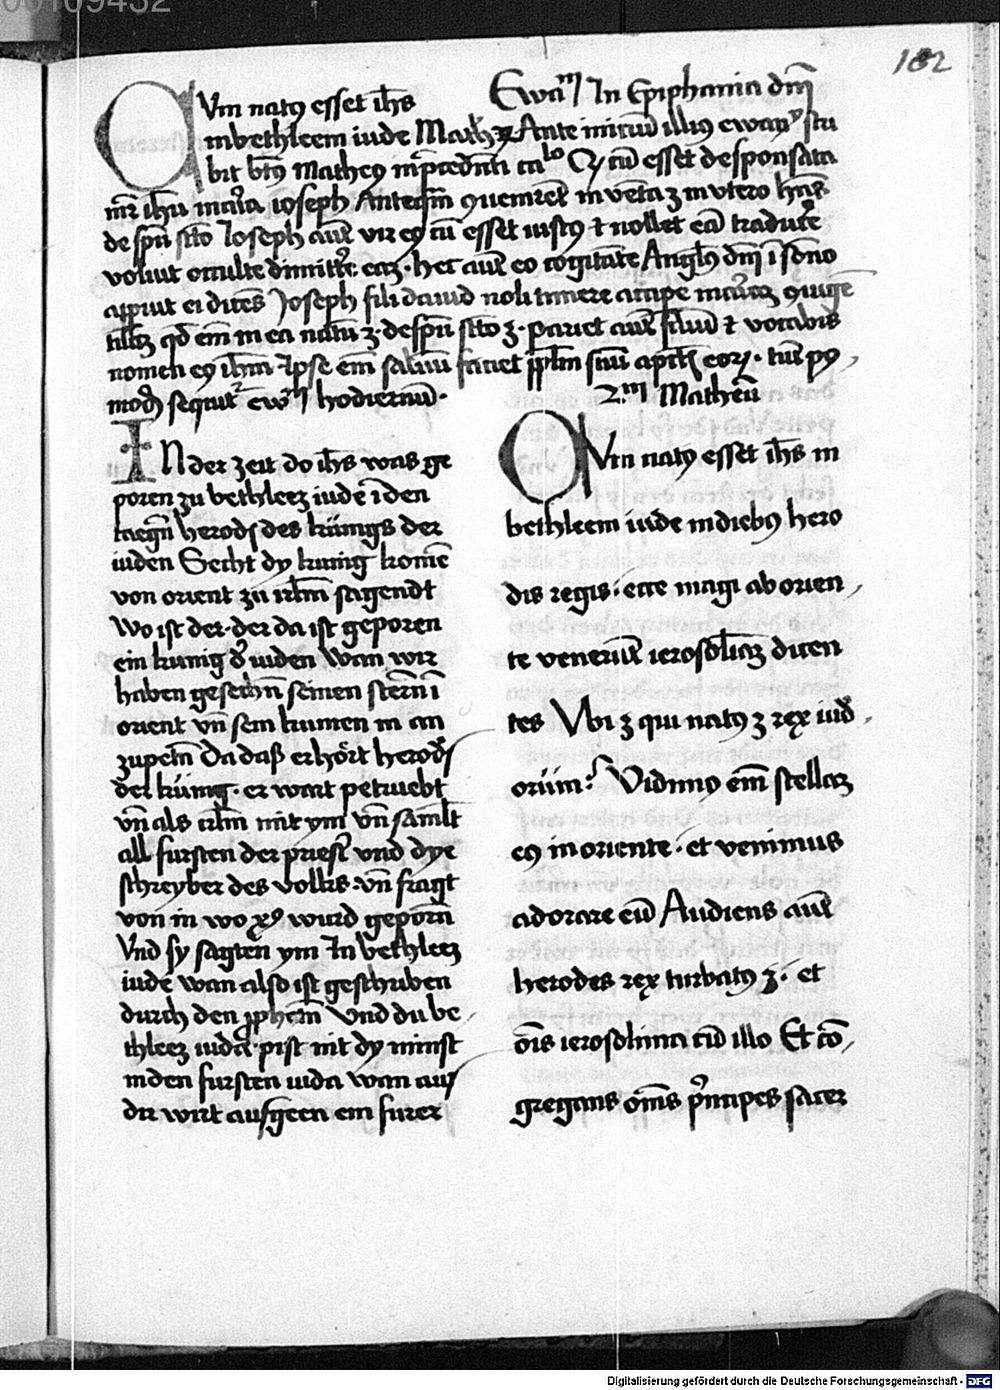 00109432
182
Ewam In Epiphania dm
Cvm natꝯ esset ihs
inbethleem iude Math Ante initiū illiꝯ ewan stu
bit btꝰ Matheꝯ in calo Cū esset desponsata
mr ihu maria ioseph Anteqm ꝯuenret inventa ꝫ in vtero hns
de spū scto Joseph aut vir eꝯ cū esset iustꝯ ⁊ nollet eā traduce
voluit occulte dimitte eaꝫ · hec aut eo cogitāte Anglꝯ dm ī sōno
apput ei dicēs Joseph fili dauid noli timere accipe mariaꝫ ꝯiugē
tuaꝫ qd em in ea natū ꝫ · de spū scto ꝫ · pariet aut filiū ⁊ vocabis
nomen eꝯ ihm · Ipse em saluū faciet pplm suū a pctis eoꝝ ·
sequit ewm hodiernū ·
2m Matheū
In der zeit do ihs was ge
poren zu bethleeꝫ iude ī den
taegn herodꝭ des küngs der
iuden Secht dy kunig komē
von orient zu irlm sagendt
Wo ist der · der da ist geporen
ein kunig d iuden Wan wir
haben gesechn seinen stern ī
orient vn sein kumen in an
zupetn Da daß erhört herodꝭ
der küng · er wart petruebt
vn als irlm mit ym vn samlt
all fursten der priest vnd dye
schreyber des volks · vn fragt
von in wo xꝯ wurd geporn
Vnd sy sagten ym In bethleeꝫ
iude wan also ist geschriben
durch den pphetn Vnd du be
thleeꝫ iuda · pist nit dy minst
in den fursten iuda wan aus
dir wirt ausgeen ein furer
Cvm natꝯ esset ihs in
bethleem iude in diebꝯ hero
dis regis · ecce magi ab orien
te venerūt ierosolimaꝫ dicen
tes Vbi ꝫ qui natꝯ ꝫ rex iud
orum ? Vidimꝯ em stellaꝫ
eꝯ in oriente · et venimus
adorare eū Audiens aut
herodes rex turbatꝯ ꝫ · et
ōis ierosolima cū illo Et cō
gregans oms pncipes sacer
Digitalisierung gefördert durch die Deutsche Forschungsgemeinschaft - DFG